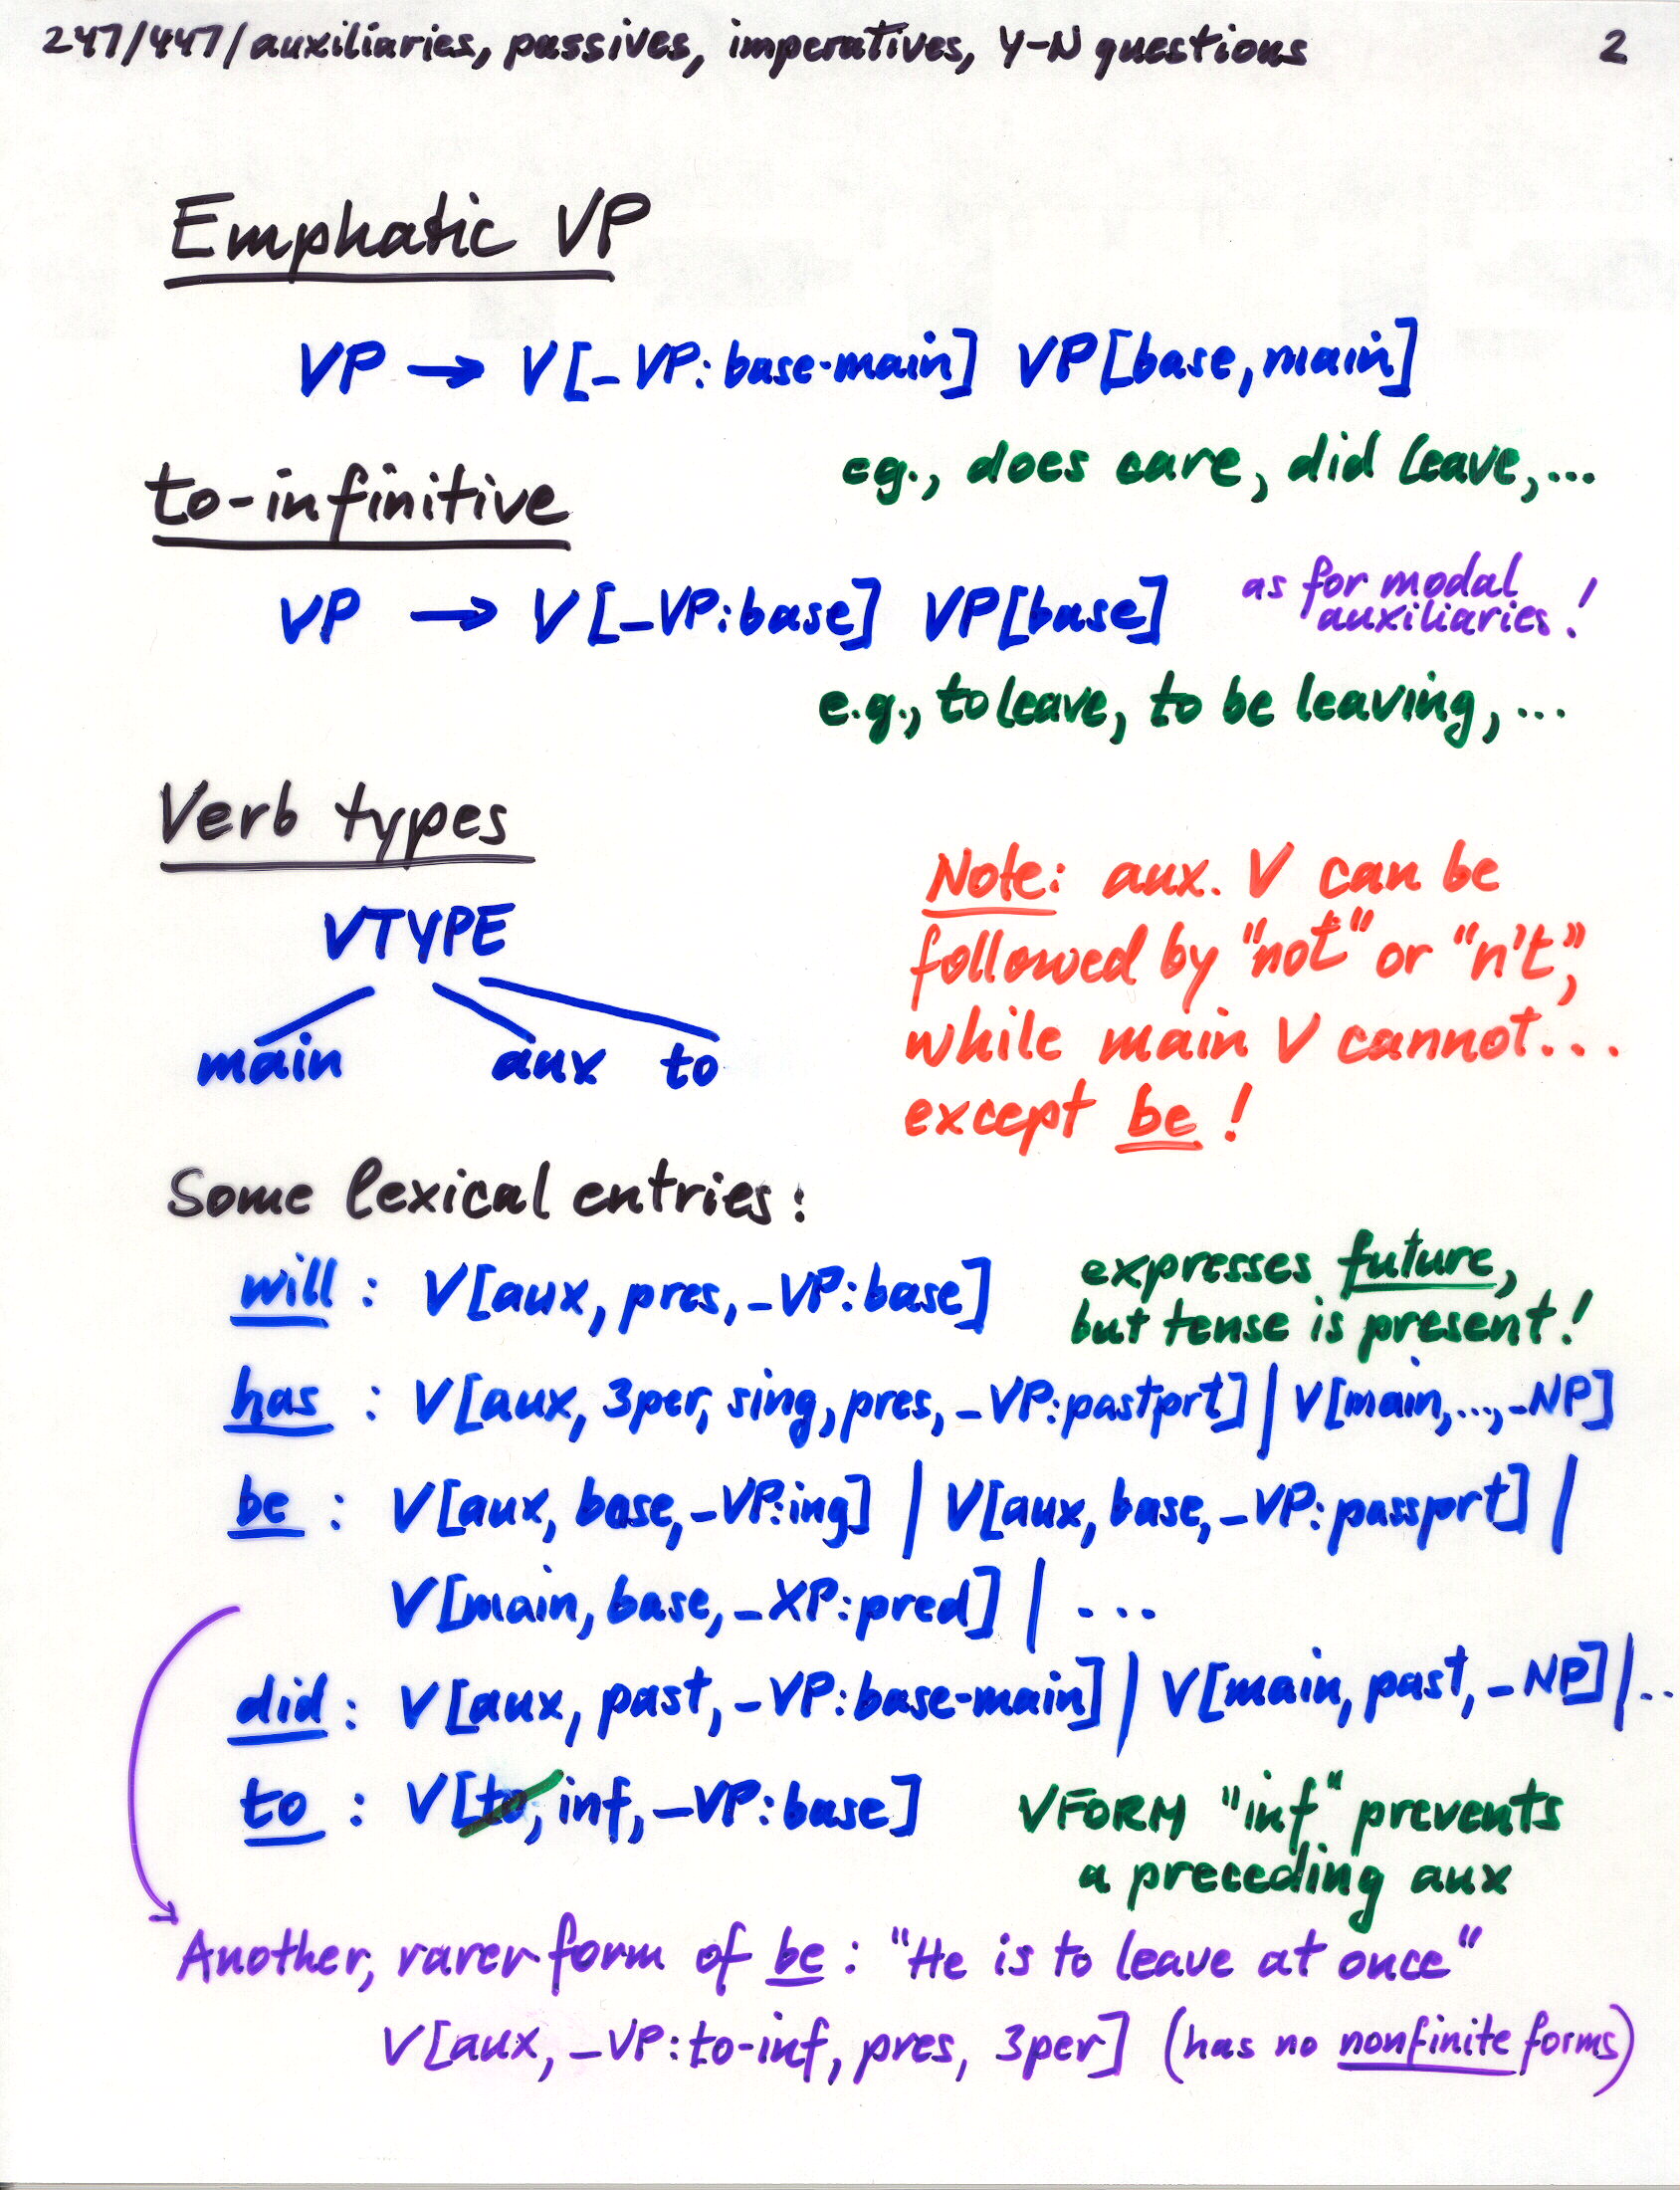 247/447/auxiliaries, passives, imperatives, Y-N questions 2
Emphatic VP
VP → V[_VP:base-main] VP[base,main]
eg., does care, did leave,...
to-infinitive
VP → V[_VP:base] VP[base] as for modal auxiliaries!
e.g., to leave, to be leaving,...
Verb types
VTYPE
main aux to
Note: aux. V can be
followed by "not" or "n't",
while main V cannot...
except be!
Some lexical entries:
will: V[aux, pres,_VP:base]
expresses future,
but tense is present!
has: V[aux, 3per, sing, pres,_VP:pastprt] | V[main,...,_NP]
be: V[aux, base,_VP:ing] | V[aux, base,_VP:passprt] |
V[main, base,_XP:pred] | ...
did: V[aux, past,_VP:base-main] | V[main, past,_NP] | ..
to: V[to, inf,_VP:base]
VFORM "inf" prevents
a preceding aux
Another, rarer form of be: "He is to leave at once"
V[aux,_VP:to-inf, pres, 3per] (has no nonfinite forms)